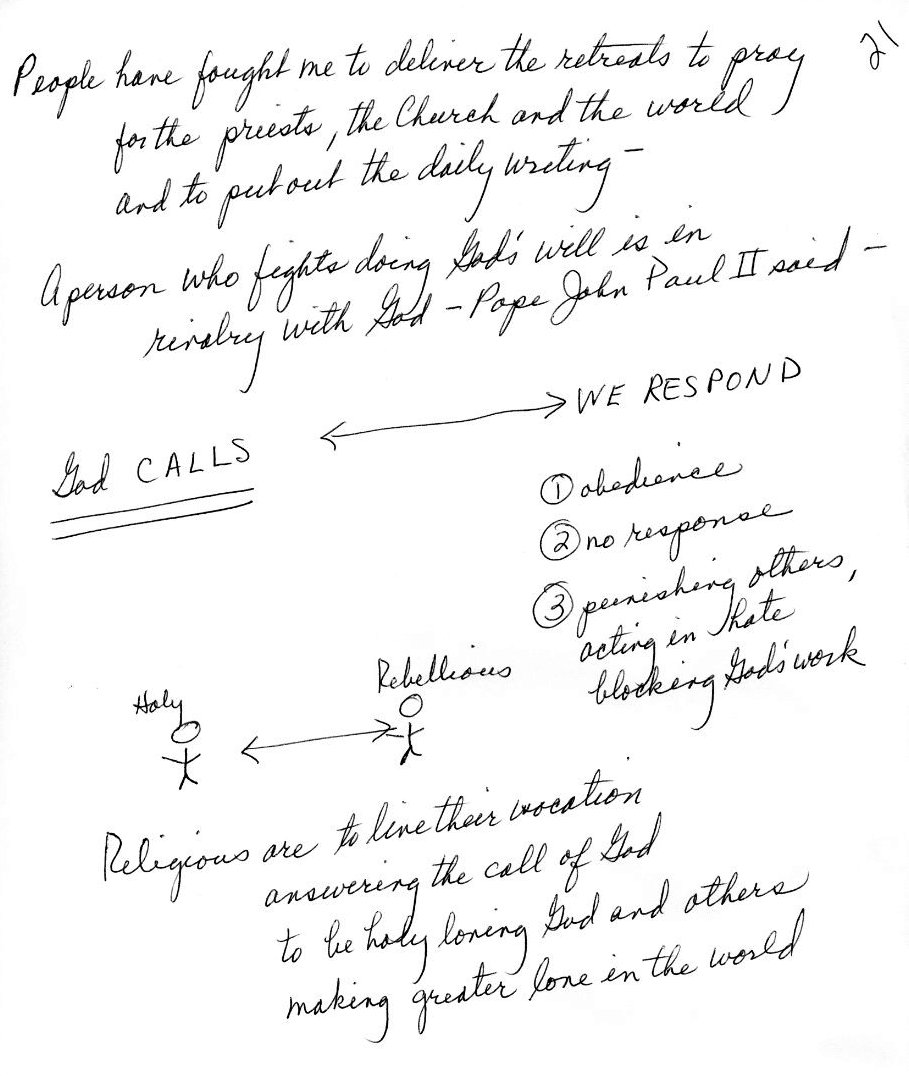 21
People have fought me to deliver the retreats to pray
for the priests, the Church and the world
and to put out the daily writing –
A person who fights doing God's will is in
rivalry with God – Pope John Paul II said –
God CALLS ↔ WE RESPOND
① obedience
② no response
③ punishing others,
acting in hate
blocking God's work
Holy ↔ Rebellious
Religious are to live their vocation
answering the call of God
to be holy loving God and others
making greater love in the world